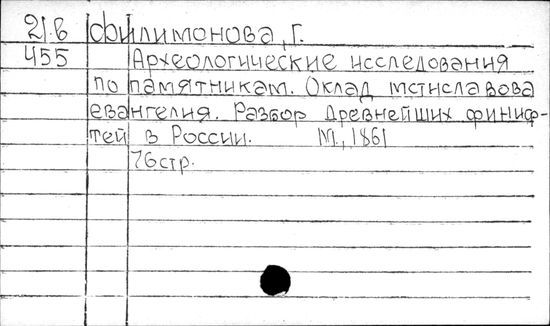 21.в Филимонова, Г.
455 Археологические исследования
по памятникам. Оклад мстиславова
евангелия. Разбор древнейших финиф-
тей в России. М., 1861
76стр.